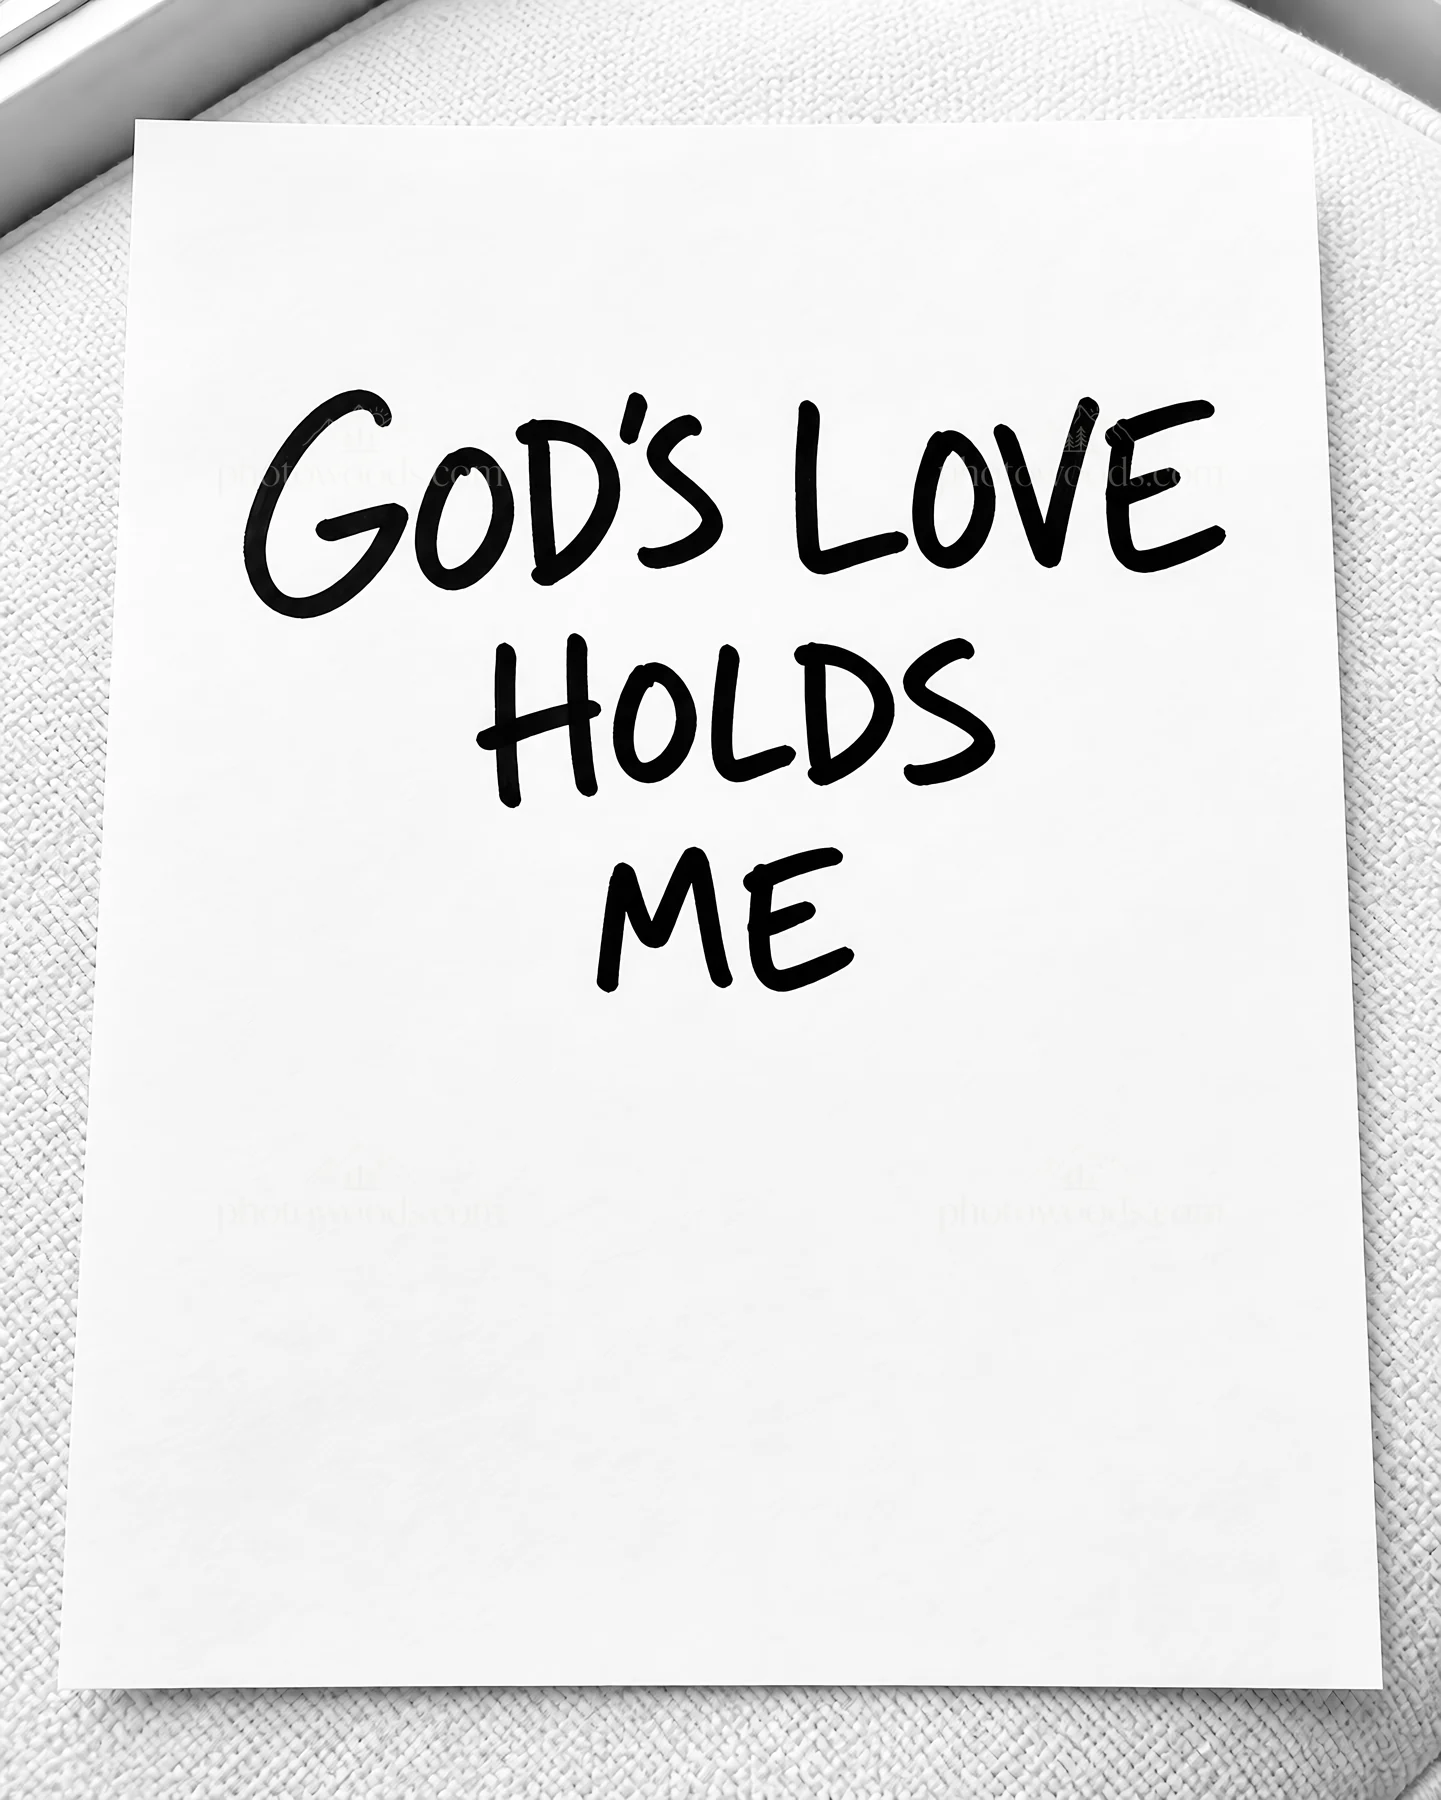 GOD'S LOVE
HOLDS
ME
photowoods.com
photowoods.com
photowoods.com
photowoods.com